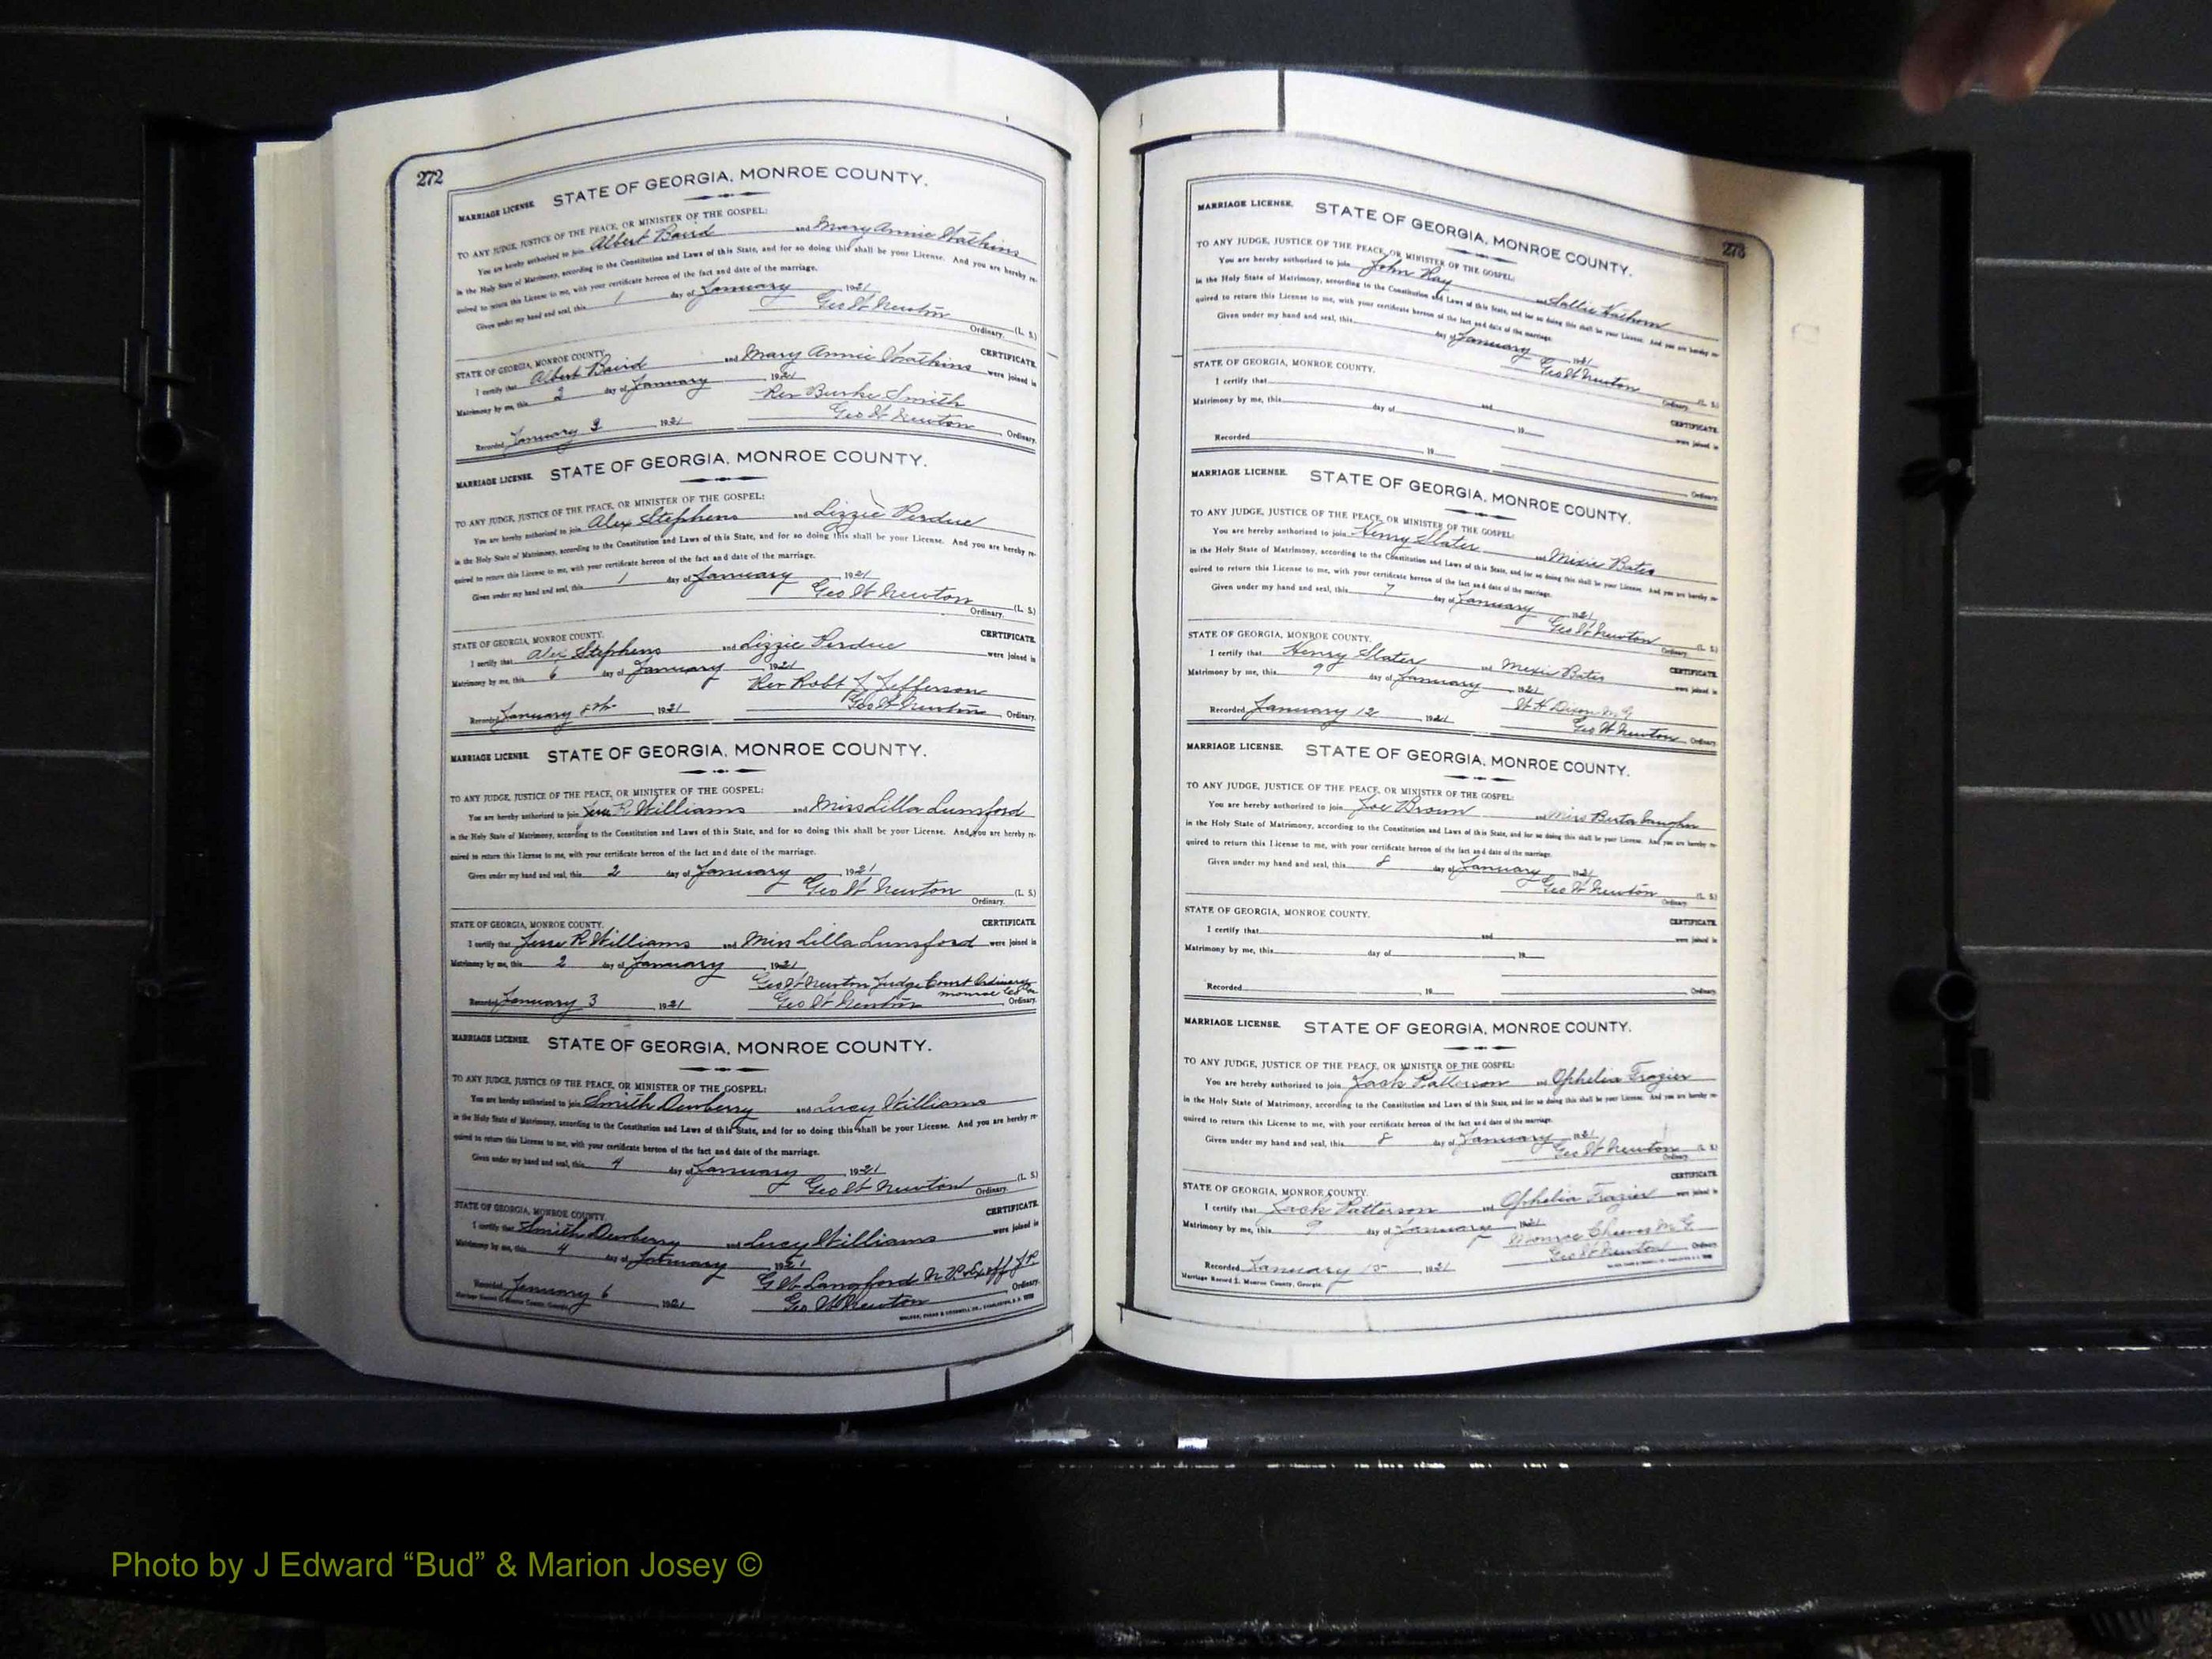 272
MARRIAGE LICENSE. STATE OF GEORGIA, MONROE COUNTY.
TO ANY JUDGE, JUSTICE OF THE PEACE, OR MINISTER OF THE GOSPEL:
You are hereby authorized to join Albert Baird and Mary Annie Watkins
in the Holy State of Matrimony, according to the Constitution and Laws of this State, and for so doing this shall be your License. And you are hereby re-
quired to return this License to me, with your certificate hereon of the fact and date of the marriage.
Given under my hand and seal, this 1 day of January 1921
Geo W Newton (L. S.)
Ordinary.
STATE OF GEORGIA, MONROE COUNTY. CERTIFICATE.
I certify that Albert Baird and Mary Annie Watkins were joined in
Matrimony by me, this 2 day of January 1921
Rev Burke Smith
Recorded January 3 1921 Geo W Newton Ordinary.
MARRIAGE LICENSE. STATE OF GEORGIA, MONROE COUNTY.
TO ANY JUDGE, JUSTICE OF THE PEACE, OR MINISTER OF THE GOSPEL:
You are hereby authorized to join Alex Stephens and Lizzie Perdue
in the Holy State of Matrimony, according to the Constitution and Laws of this State, and for so doing this shall be your License. And you are hereby re-
quired to return this License to me, with your certificate hereon of the fact and date of the marriage.
Given under my hand and seal, this 1 day of January 1921
Geo W Newton (L. S.)
Ordinary.
STATE OF GEORGIA, MONROE COUNTY. CERTIFICATE.
I certify that Alex Stephens and Lizzie Perdue were joined in
Matrimony by me, this 6 day of January 1921
Rev Robt L Jefferson
Recorded January 1921 Geo W Newton Ordinary.
MARRIAGE LICENSE. STATE OF GEORGIA, MONROE COUNTY.
TO ANY JUDGE, JUSTICE OF THE PEACE, OR MINISTER OF THE GOSPEL:
You are hereby authorized to join Jesse R Williams and Miss Lilla Lunsford
in the Holy State of Matrimony, according to the Constitution and Laws of this State, and for so doing this shall be your License. And you are hereby re-
quired to return this License to me, with your certificate hereon of the fact and date of the marriage.
Given under my hand and seal, this 2 day of January 1921
Geo W Newton (L. S.)
Ordinary.
STATE OF GEORGIA, MONROE COUNTY. CERTIFICATE.
I certify that Jesse R Williams and Miss Lilla Lunsford were joined in
Matrimony by me, this 2 day of January 1921
Geo W Newton Judge Court Ordinary
Monroe
Recorded January 3 1921 Geo W Newton Ordinary.
MARRIAGE LICENSE. STATE OF GEORGIA, MONROE COUNTY.
TO ANY JUDGE, JUSTICE OF THE PEACE, OR MINISTER OF THE GOSPEL:
You are hereby authorized to join Smith Dewberry and Lucy Williams
in the Holy State of Matrimony, according to the Constitution and Laws of this State, and for so doing this shall be your License. And you are hereby re-
quired to return this License to me, with your certificate hereon of the fact and date of the marriage.
Given under my hand and seal, this 4 day of January 1921
Geo W Newton (L. S.)
Ordinary.
STATE OF GEORGIA, MONROE COUNTY. CERTIFICATE.
I certify that Smith Dewberry and Lucy Williams were joined in
Matrimony by me, this 4 day of January 1921
G W Langford N. P. & Ex off J P
Recorded January 6 1921 Geo W Newton Ordinary.
273
MARRIAGE LICENSE. STATE OF GEORGIA, MONROE COUNTY.
TO ANY JUDGE, JUSTICE OF THE PEACE, OR MINISTER OF THE GOSPEL:
You are hereby authorized to join John Ray and Sallie
in the Holy State of Matrimony, according to the Constitution and Laws of this State, and for so doing this shall be your License. And you are hereby re-
quired to return this License to me, with your certificate hereon of the fact and date of the marriage.
Given under my hand and seal, this day of January 1921
Geo W Newton (L. S.)
Ordinary.
STATE OF GEORGIA, MONROE COUNTY. CERTIFICATE.
I certify that and were joined in
Matrimony by me, this day of 19
Recorded 19 Ordinary.
MARRIAGE LICENSE. STATE OF GEORGIA, MONROE COUNTY.
TO ANY JUDGE, JUSTICE OF THE PEACE, OR MINISTER OF THE GOSPEL:
You are hereby authorized to join Henry Slater and Mixie Bates
in the Holy State of Matrimony, according to the Constitution and Laws of this State, and for so doing this shall be your License. And you are hereby re-
quired to return this License to me, with your certificate hereon of the fact and date of the marriage.
Given under my hand and seal, this 7 day of January 1921
Geo W Newton (L. S.)
Ordinary.
STATE OF GEORGIA, MONROE COUNTY. CERTIFICATE.
I certify that Henry Slater and Mexie Bates were joined in
Matrimony by me, this 9 day of January 1921
W H Dixon M. G.
Recorded January 12 1921 Geo W Newton Ordinary.
MARRIAGE LICENSE. STATE OF GEORGIA, MONROE COUNTY.
TO ANY JUDGE, JUSTICE OF THE PEACE, OR MINISTER OF THE GOSPEL:
You are hereby authorized to join Joe Brown and Miss Berta Vaughn
in the Holy State of Matrimony, according to the Constitution and Laws of this State, and for so doing this shall be your License. And you are hereby re-
quired to return this License to me, with your certificate hereon of the fact and date of the marriage.
Given under my hand and seal, this 8 day of January 1921
Geo W Newton (L. S.)
Ordinary.
STATE OF GEORGIA, MONROE COUNTY. CERTIFICATE.
I certify that and were joined in
Matrimony by me, this day of 19
Recorded 19 Ordinary.
MARRIAGE LICENSE. STATE OF GEORGIA, MONROE COUNTY.
TO ANY JUDGE, JUSTICE OF THE PEACE, OR MINISTER OF THE GOSPEL:
You are hereby authorized to join Zack Patterson and Ophelia Frazier
in the Holy State of Matrimony, according to the Constitution and Laws of this State, and for so doing this shall be your License. And you are hereby re-
quired to return this License to me, with your certificate hereon of the fact and date of the marriage.
Given under my hand and seal, this 8 day of January 1921
Geo W Newton (L. S.)
Ordinary.
CERTIFICATE.
STATE OF GEORGIA, MONROE COUNTY.
I certify that Zack Patterson and Ophelia Frazier were joined in
Matrimony by me, this 9 day of January 1921
Monroe Cheeves M. G.
Geo W Newton Ordinary.
Recorded January 15 1921
Marriage Record J. Monroe County, Georgia.
Photo by J Edward “Bud” & Marion Josey ©